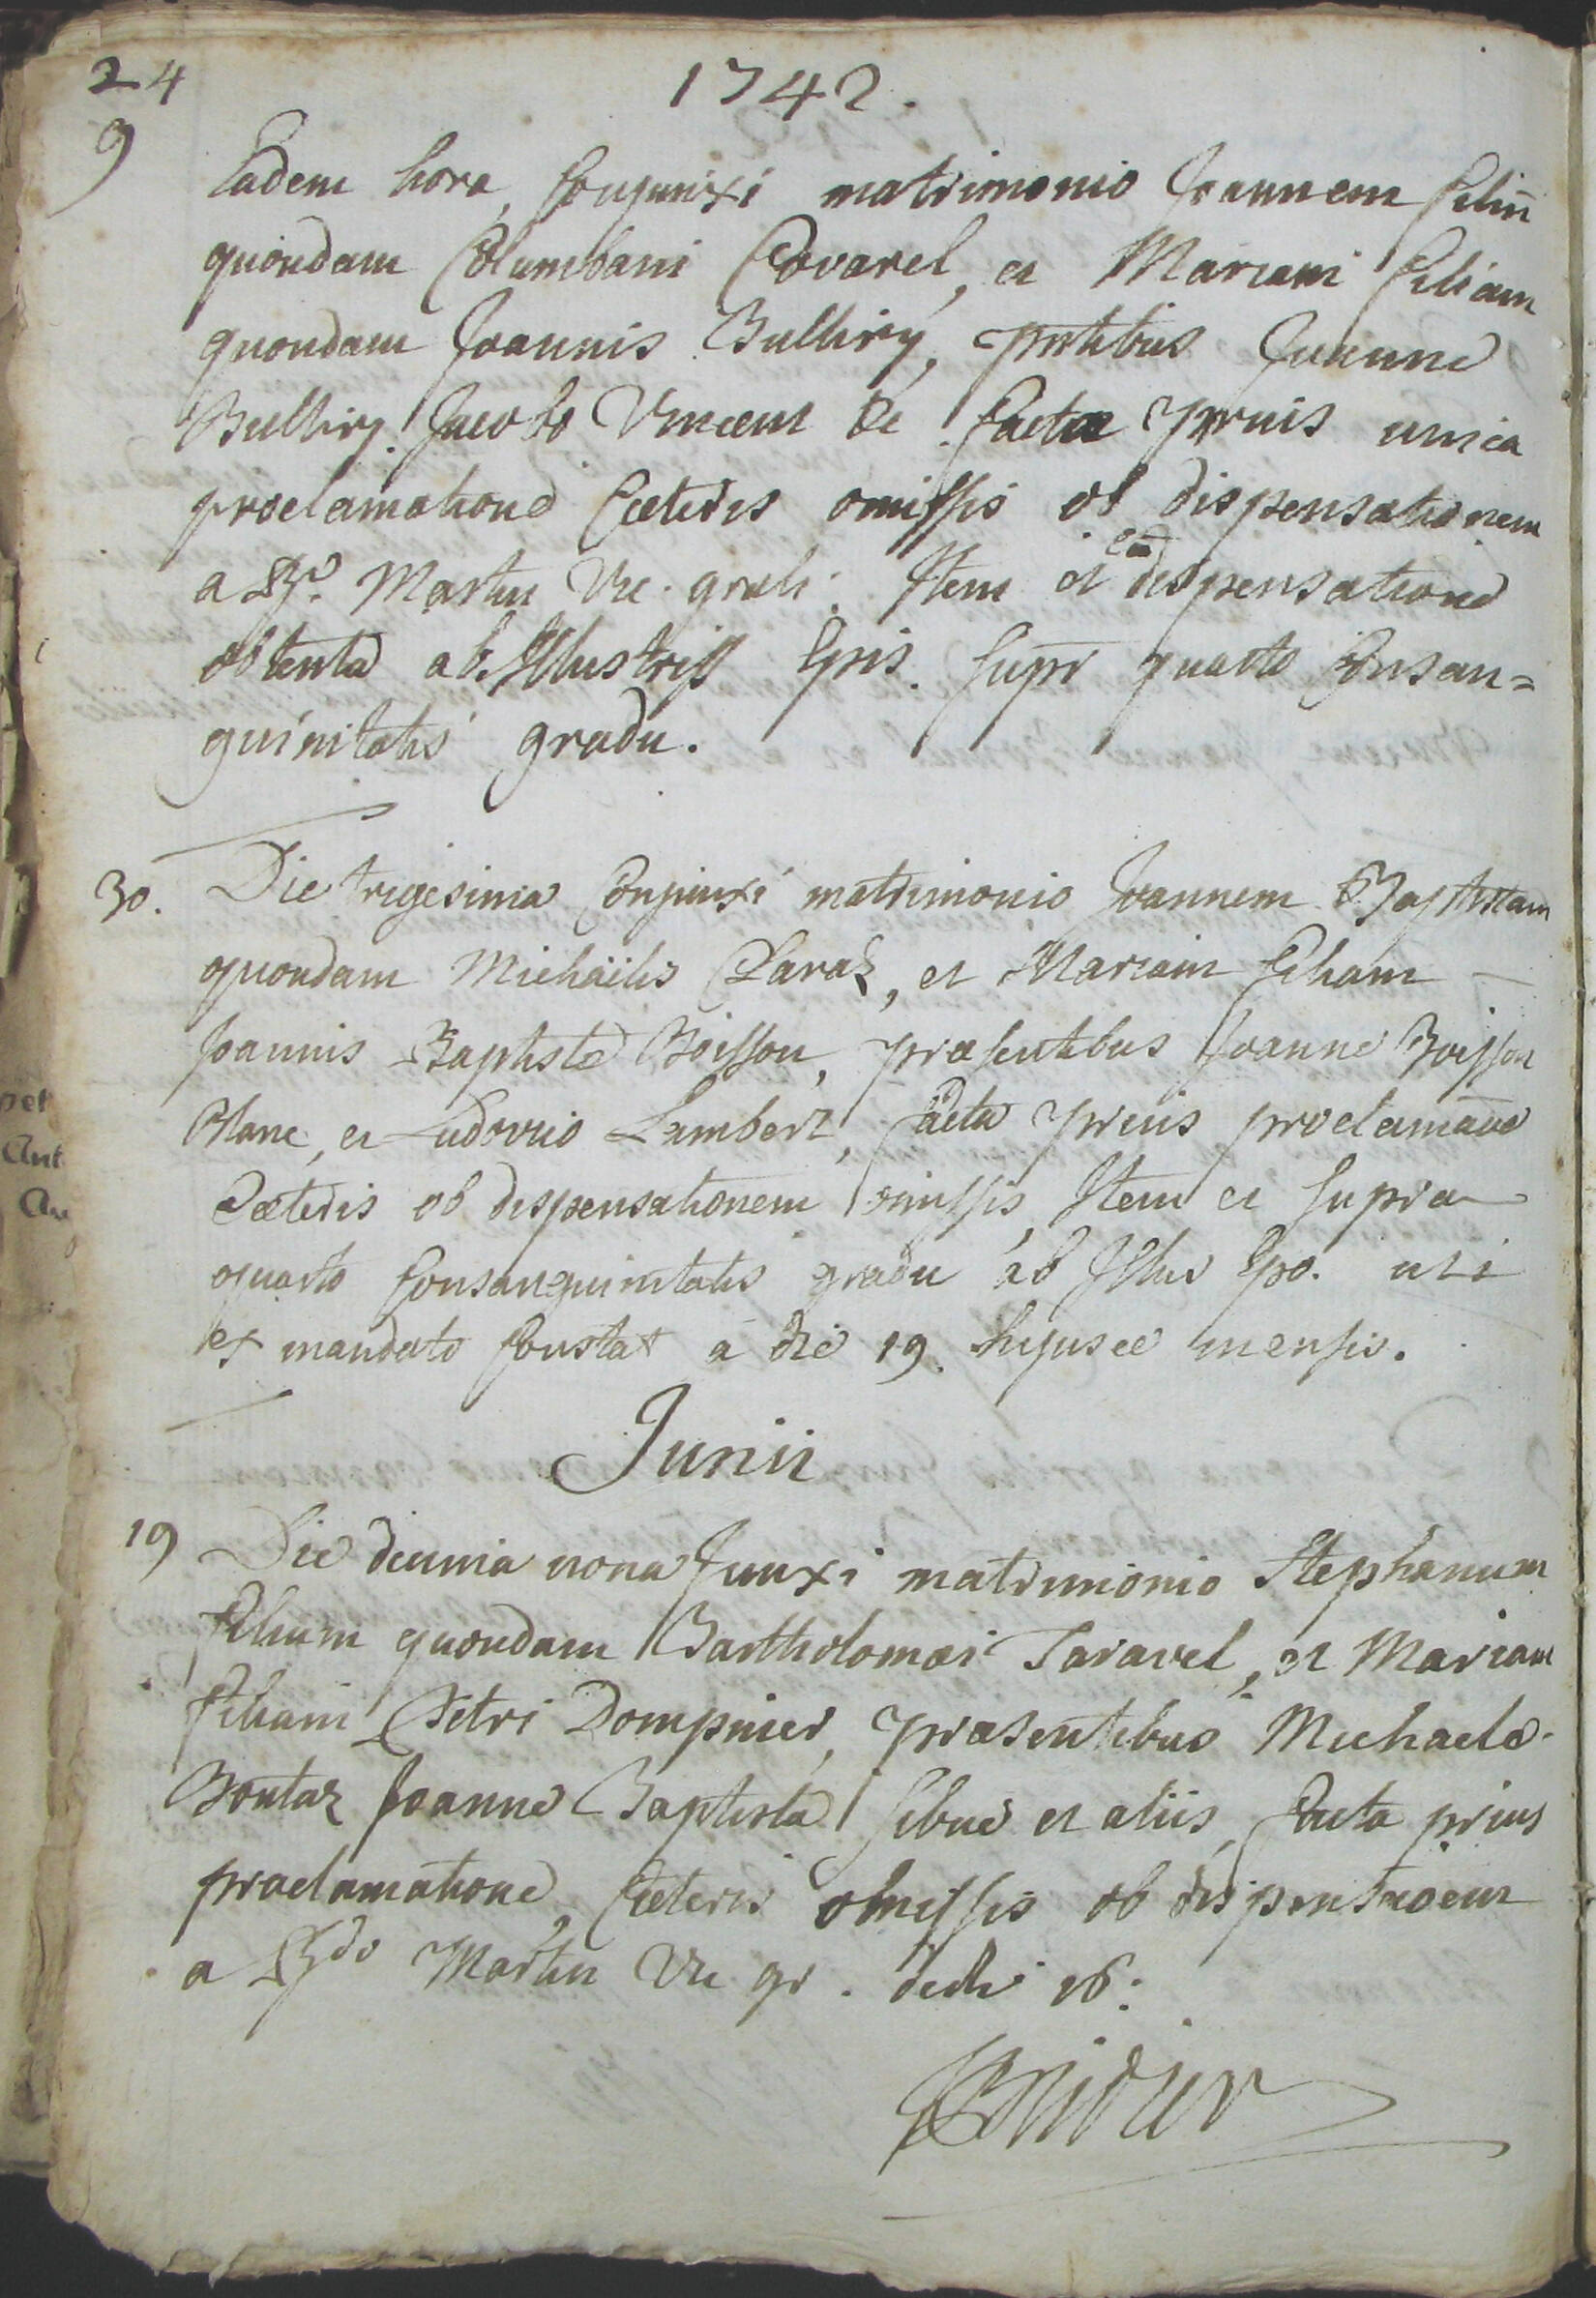 24
1742.
9
Eadem hora, Conjunxi matrimonio Joannem filiū
quondam Columbani Covarel, et Mariam filiam
quondam Joannis Bulliry, pntibus Joanne
Bulliry. Jacobo Vincent &c facta prius unica
proclamatione Cæteris omissis ob dispensationem
a Rd. Martin Vic. grali. Item et ead dispensatione
obtenta ab Illustriss Epis. supr quarto Consan=
guinitatis gradu.
30. Die trigesima Conjunxi matrimonio Joannem Baptistam
quondam Michäelis Claraz, et Mariam filiam
Joannis Baptistæ Boisson, præsentibus Joanne Boisson
Blanc, et Ludovico Lambert, facta prius proclamāne
Cæteris ob dispensationem omissis, Item et supra
quarto Consanguinitatis gradu ab Illus Epo. uti
ex mandato Constat a die 19. hujusce mensis.
Junii
19 Die decima nona Junxi matrimonio Stephanum
filium quondam Bartholomæi Taravel, et Mariam
filiam Petri Dompnier, præsentibus Michaele
Bontaz Joanne Baptista Sibué et aliis, facta prius
proclamatione, Cæteris omissis ob dispensaōem
a Rdo Martin Vic gr. die 16: